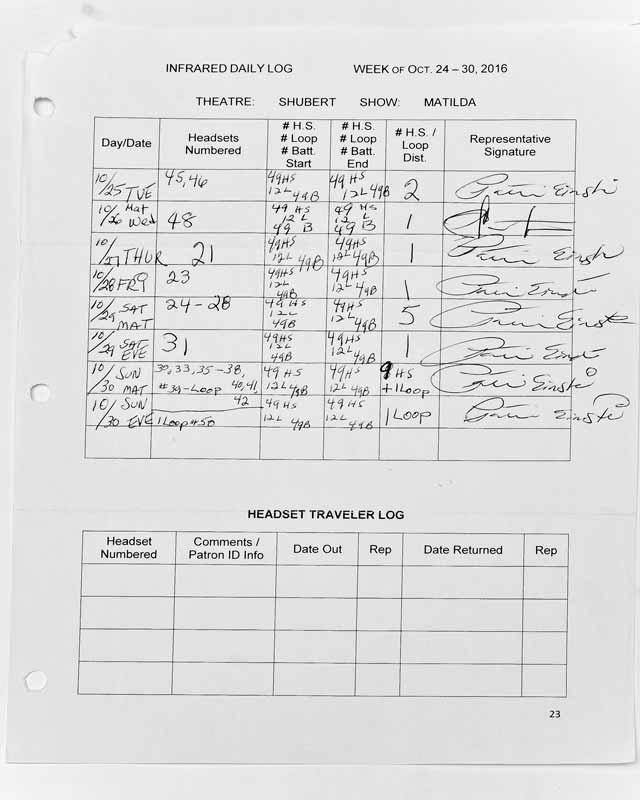 INFRARED DAILY LOG WEEK OF OCT. 24 – 30, 2016
THEATRE: SHUBERT SHOW: MATILDA
Day/Date Headsets Numbered # H.S. # Loop # Batt. Start # H.S. # Loop # Batt. End # H.S. / Loop Dist. Representative Signature
10/25 TUE 45,46 49HS 12L 49B 49 HS 12L 49B 2
10/26 Mat Wed 48 49 HS 12 L 49 B 49 HS 12 L 49 B 1
10/27 THUR 21 49HS 12L 49B 49HS 12L 49B 1
10/28 FRI 23 49HS 12L 49B 49HS 12L 49B 1
10/29 SAT MAT 24-28 49HS 12L 49B 49HS 12L 49B 5
10/29 SAT EVE 31 49HS 12L 49B 49HS 12L 49B 1
10/30 SUN MAT 30,33,35-38, #39-Loop 40,41, 42 49 HS 12L 49B 49 HS 12L 49B 9 HS +1Loop
10/30 SUN EVE 1 Loop #50 49 HS 12L 49B 49 HS 12L 49B 1 Loop
HEADSET TRAVELER LOG
Headset Numbered Comments / Patron ID Info Date Out Rep Date Returned Rep
23